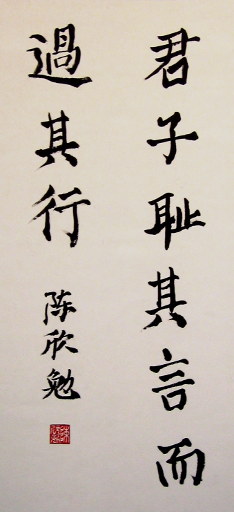 君子耻其言而
過其行
陈欣勉